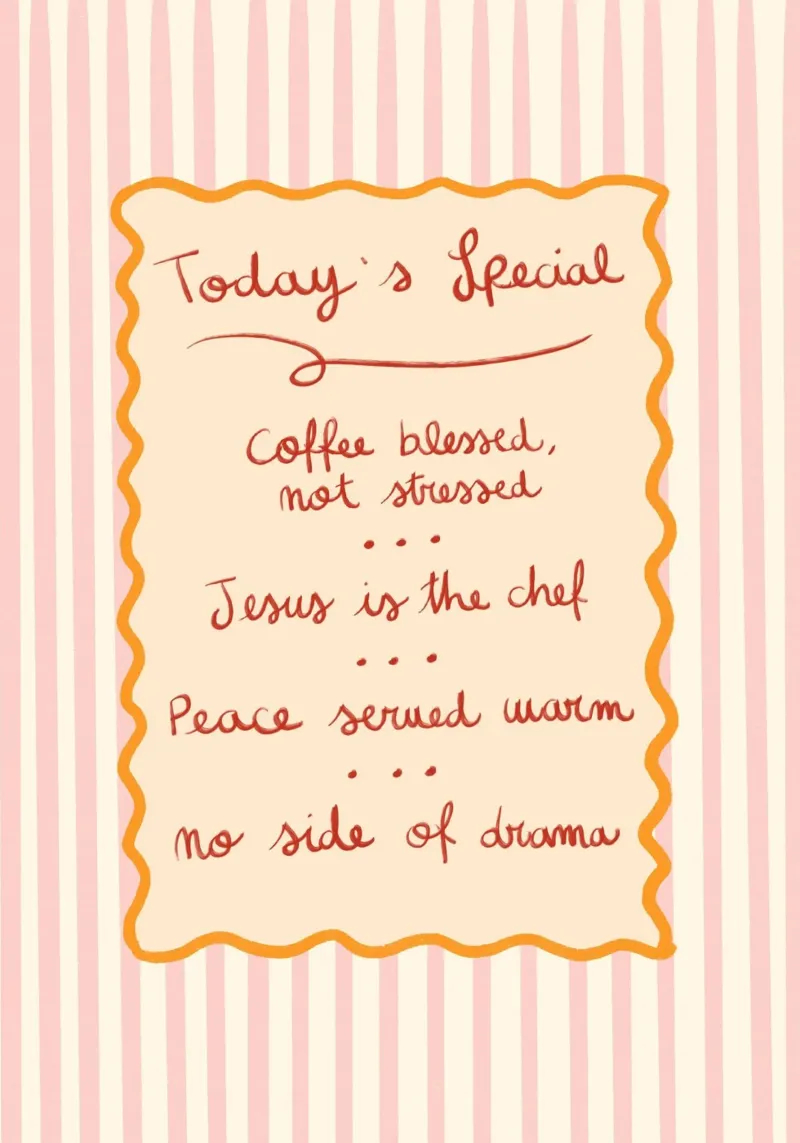 Today's Special
Coffee blessed,
not stressed
...
Jesus is the chef
...
Peace served warm
...
no side of drama